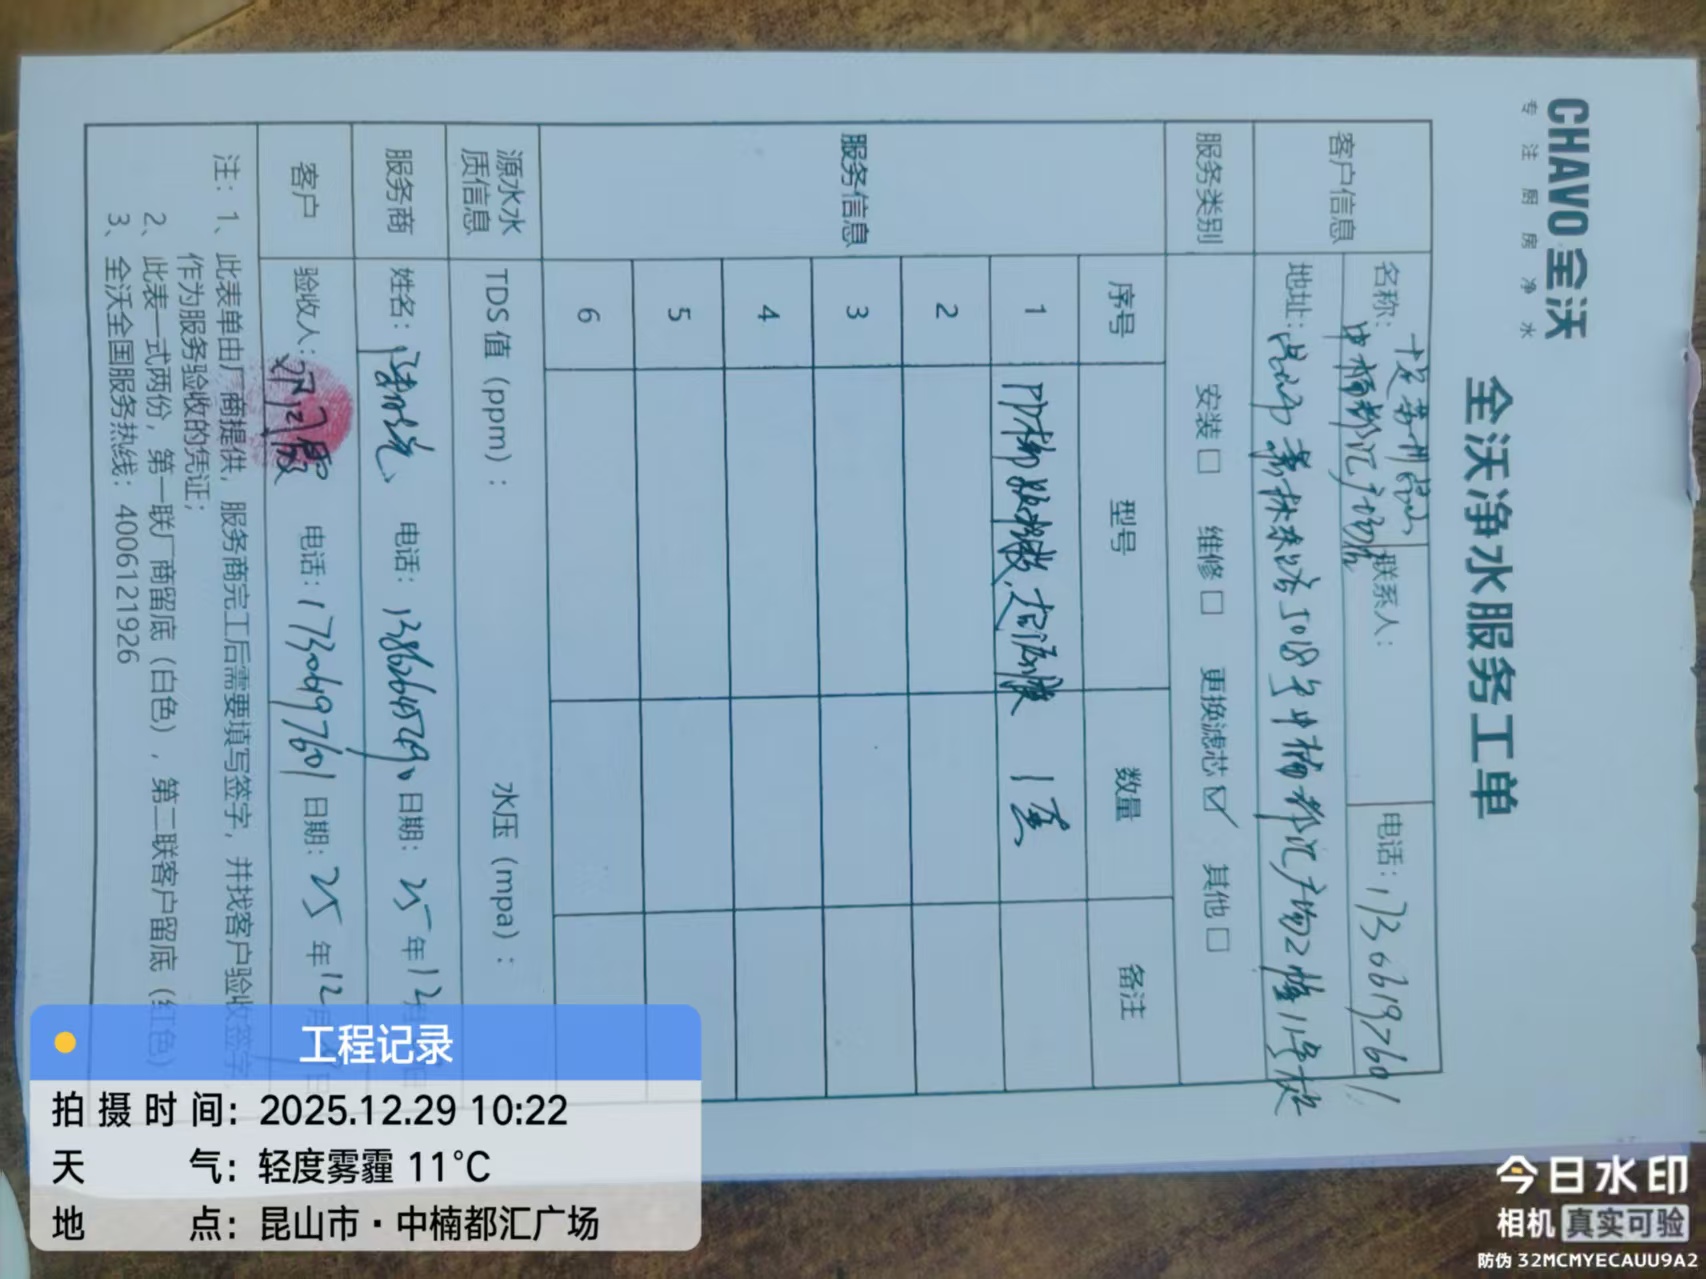 CHAVO 全沃
专注厨房净水
全沃净水服务工单
客户信息
名称:
中楠都汇广场店
联系人:
电话: 17306197601
地址: 昆山市 5018号中楠都汇广场2幢
服务类别
安装 □ 维修 □ 更换滤芯 ☑ 其他 □
服务信息
序号 型号 数量 备注
1 1套
2
3
4
5
6
源水水质信息
TDS 值(ppm): 水压(mpa):
服务商
姓名: 电话: 日期: 25年12月
客户
验收人: 电话: 17306197601 日期: 25年12月
注: 1、此表单由厂商提供, 服务商完工后需要填写签字, 并找客户验收签字,
作为服务验收的凭证;
2、此表一式两份, 第一联厂商留底(白色), 第二联客户留底(红色)
3、全沃全国服务热线: 4006121926
工程记录
拍摄时间: 2025.12.29 10:22
天气: 轻度雾霾 11°C
地点: 昆山市·中楠都汇广场
今日水印
相机 真实可验
防伪 32MCMYECAUU9A2